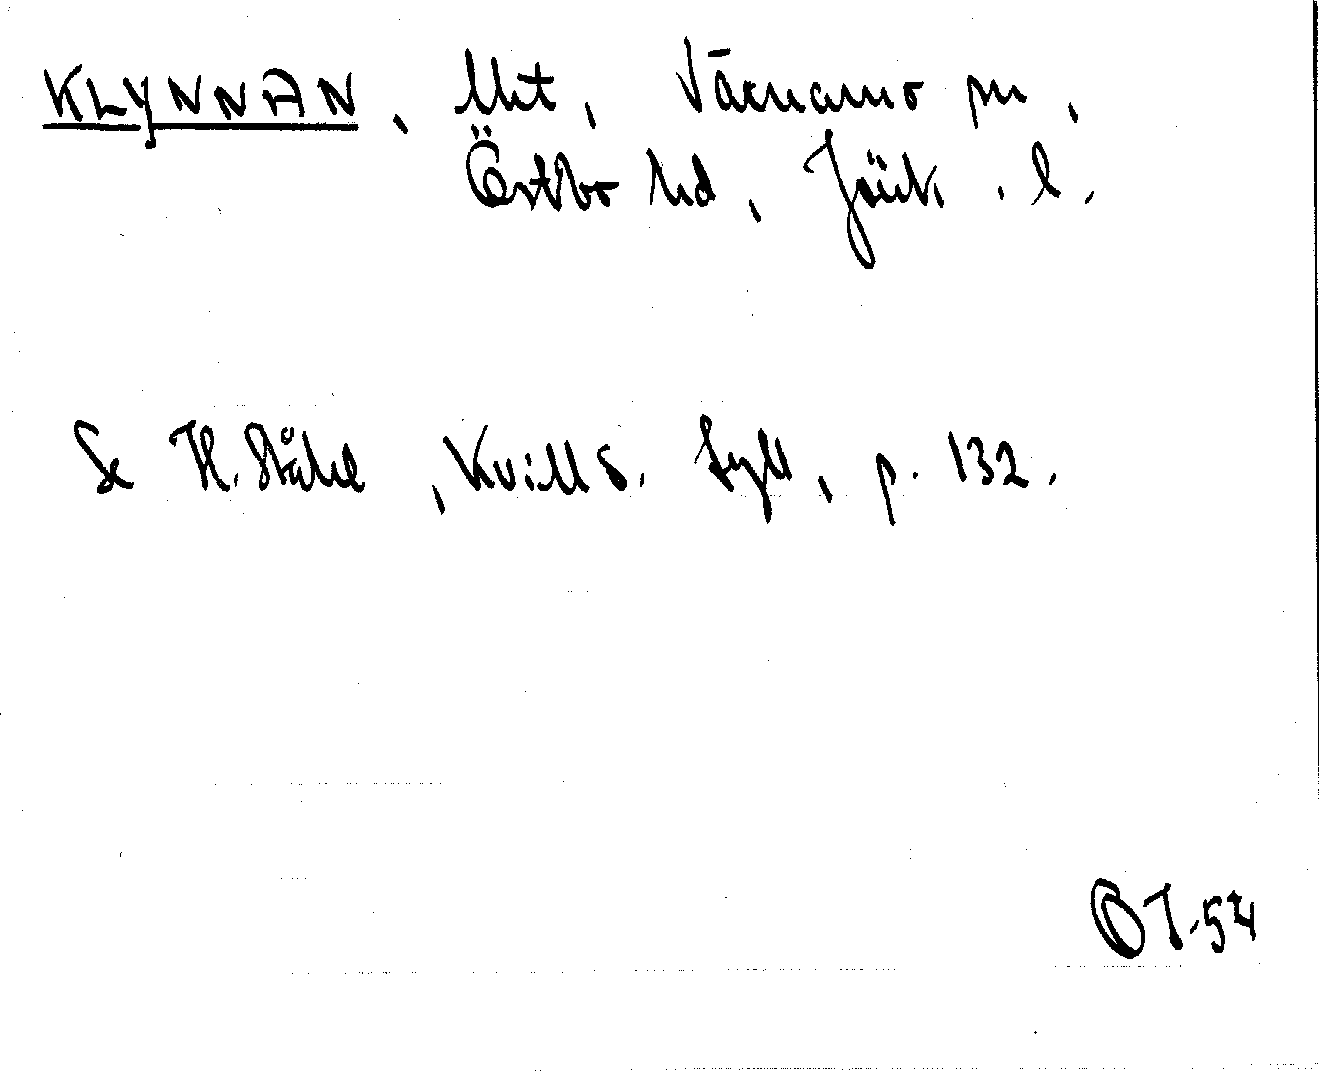 KLYNNAN, Uht, Värnamo sn,
Östbo hd, Jönk. l.
Se H. Ståhl, Kvill o. Fyll, p. 132.
OJ-54